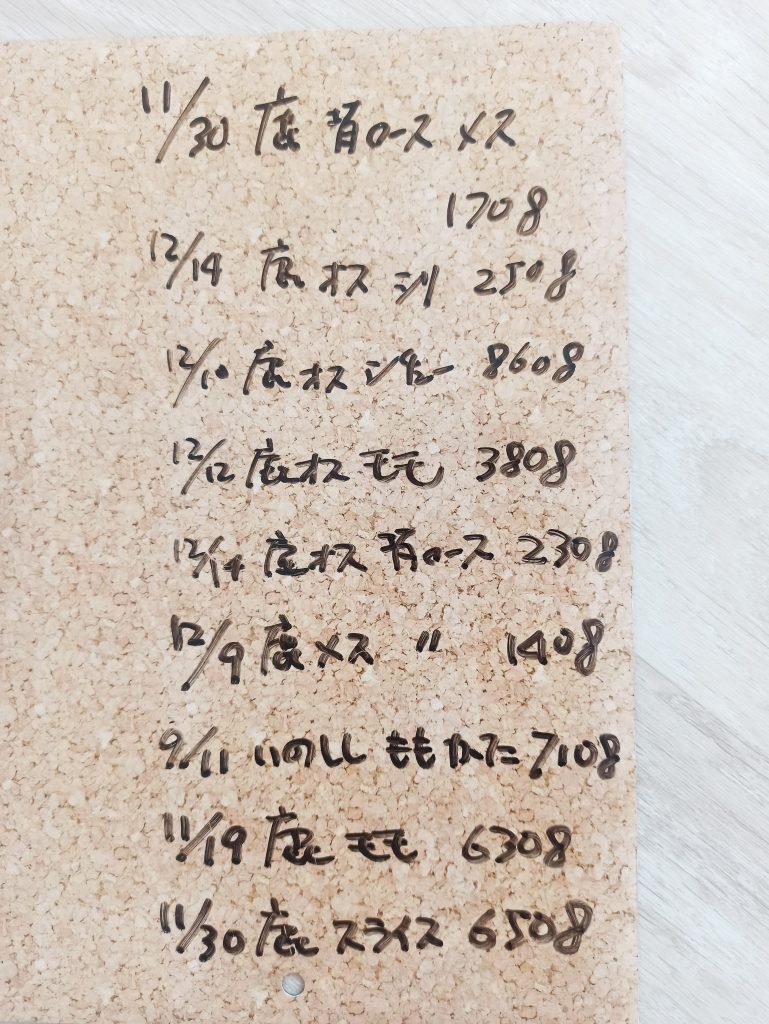 11/30 鹿 背ロース メス
170g
12/14 鹿 オス シリ 250g
12/10 鹿 オス シチュー 860g
12/12 鹿オス モモ 380g
12/14 鹿オス 背ロース 230g
12/9 鹿メス 〃 140g
9/11 いのしし ももかた 710g
11/19 鹿 モモ 630g
11/30 鹿 スライス 650g